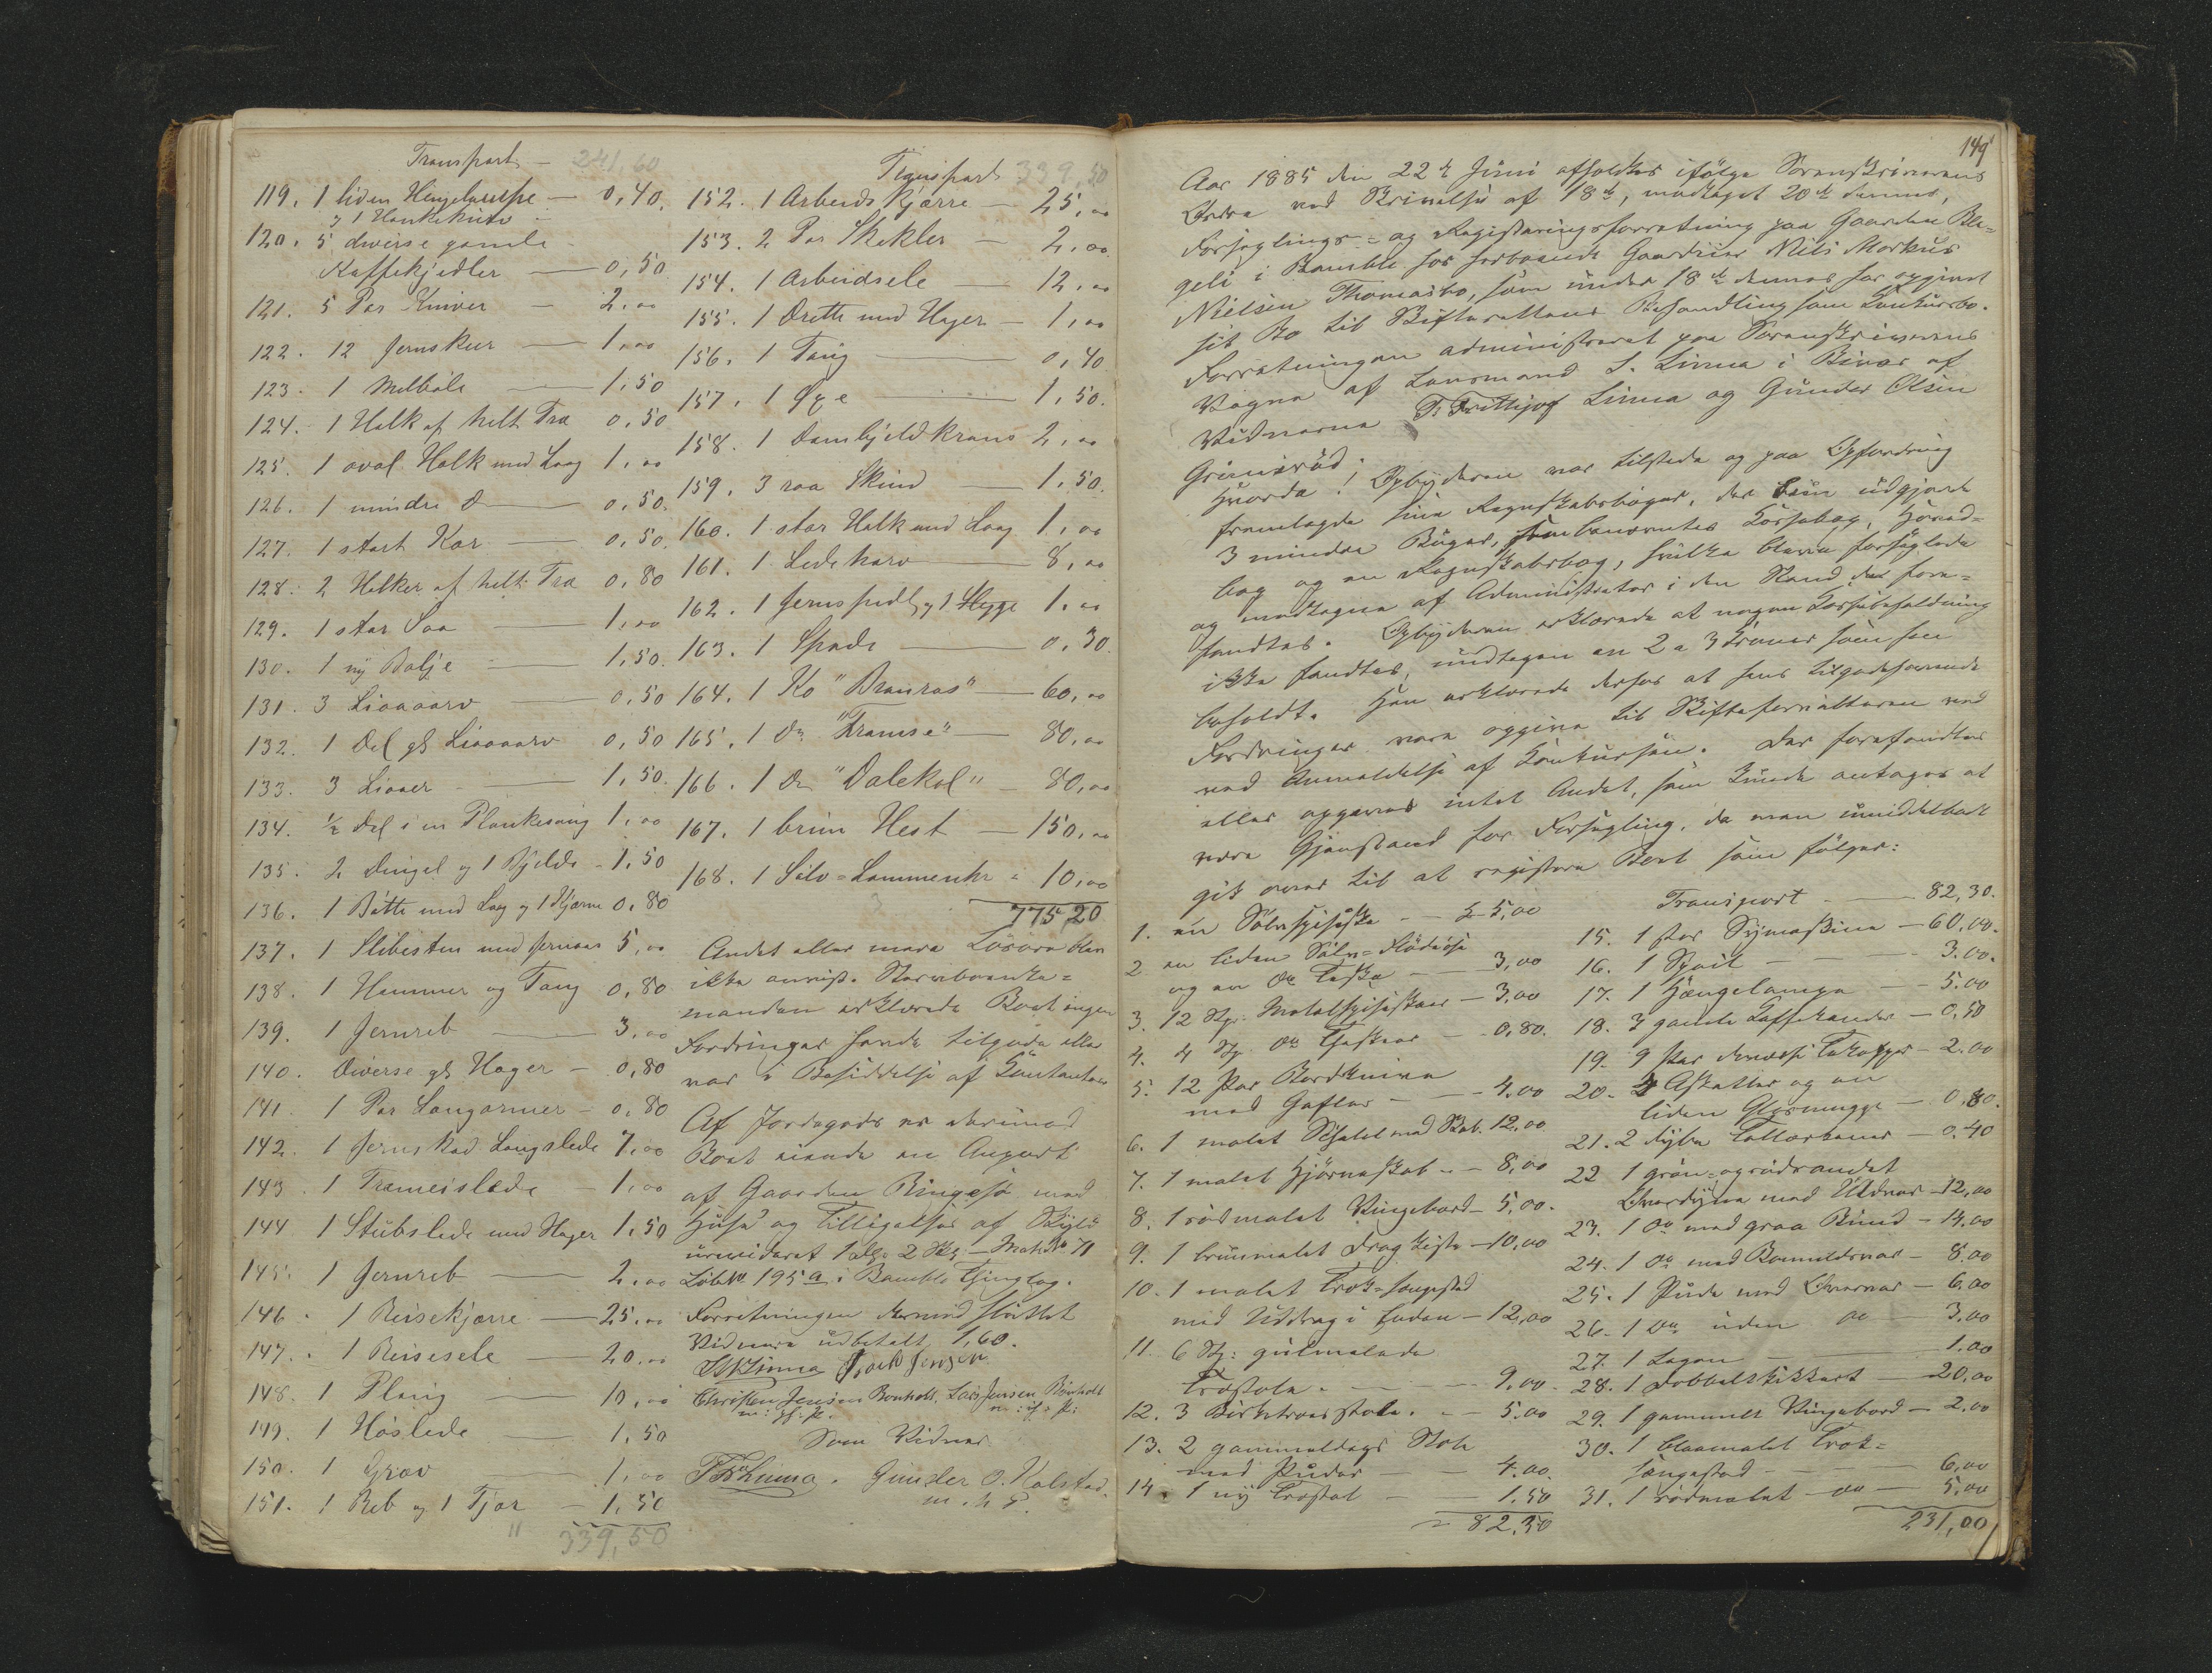 Transport — 241,60
119. 1 liden Hengelampe — 0,40.
og 1 Hankekurv
120. 5 diverse gamle
Kaffekjedler — 0,50
121. 5 Par Kniver — 2,00
122. 12 Jernskeer — 1,00
123. 1 Melbøle — 1,50
124. 1 Holk af helt Træ 0,50
125. 1 oval Holk med Laag 1,00
126. 1 mindre Do — 0,50.
127. 1 stort Kar — 0,50.
128. 2 Holker af helt Træ 0,80
129. 1 stor Saa — 1,00
130. 1 ny Balje — 1,50.
131. 3 Liaaaarv — 0,50
132. 1 Del gl. Liaaaarv 0,50
133. 3 Liaaer — 1,50.
134. ½ Del i en Plankesaug 1,00
135. 2 Dengel og 1 Bjelde - 1,50
136. 1 Bötte med Lag og 1 Kjærne 0,80
137. 1 Slibesten med Jernaas 5,00
138. 1 Hammer og Tang 0,80
139. 1 Jernreb — 3,00
140. Diverse gl. Hager — 0,80
141. 1 Par Langormer — 0,80
142. 1 Jernskod Langslede 7,00
143. 1 Træmeislæde — 1,00
144 1 Stubslede med Hager 1,50
145. 1 Jernreb — 2,00
146. 1 Reisekjærre — 25,00
147. 1 Reisesele — 20,00
148. 1 Ploug — 10,00
149. 1 Höslede — 1,50
150. 1 Grev — 1,00
151. 1 Reb og 1 Tjor — 1,50
339,50
Transport 339,50
152. 1 Arbeids Kjærre — 25,00
153. 2 Par Skekler — 2,00
154. 1 Arbeidsele — 12,00
155. 1 Drætte med Hager — 1,00
156. 1 Tang — 0,40
157. 1 Øxe — 1,50.
158. 1 Dombjeldkrans 2,00
159. 3 raa Skind — 1,50.
160. 1 stor Holk med Laag 1,00
161. 1 Ledeharv — 8,00
162. 1 Jernspedt og 1 Slægge 1,00
163. 1 Spade — 0,30.
164. 1 Ko "Branros" — 60,00
165. 1 Do "Framse" — 80,00
166. 1 Do "Dalekol" — 80,00
167. 1 brun Hest — 150,00
168. 1 Sölv=Lommeuhr = 10,00
775,20
Andet eller mere Lösöre blev
ikke anvist. Stervboenke=
manden erklærede Boet ingen
Fordringer havde tilgode eller
var i Besiddelse af Contanter
Af Jordegods er derimod
Boet eiende en August
af Gaarden Ringsjö med
Huse og Tilligelser af Skyld
urevideret 1 alr. 2 Skg. — Matr No 71
Löbno 195a i Bamble Thinglag.
Forretningen dermed sluttet
Vidnerne udbetalt 1,60.
SNLinna Isack Jensen
Christen Jensen Bonholt, Lars Jensen Bonholt
m: p: P. m: p: P:
Som Vidner
TFrLinna. Gunder O. Kalstad.
m. h. P.
149
Aar 1885 den 22de Juni afholdtes ifølge Sorenskriverens
Ordre ved Skrivelse af 18de, modtaget 20de dennes,
Forseglings= og Registreringsforretning paa Gaarden Bla=
geli i Bamble hos herboende Gaardeier Nils Markus
Nielsen Thomasbo, som under 18de dennes har opgivet
sit Bo til Skifterettens Behandling som Konkursbo.
Forretningen administreret paa Sorenskriverens
Vegne af Lensmand S. Linna i Bivær af
Vidnerne T: Frithjof Linna og Gunder Olsen
Grimsröd.
Hvorda! Opbyderen var tilstede og paa Opfordring
fremlagde sine Regnskabsböger, der kun udgjorde
3 mindre Böger, benævntes Kassabog, Hoved=
bog og en Regnskabsbog, hvilke bleve forseglede
og modtagne af Administrator i den Stand de fore=
fandtes. Opbyderen erklærede at nogen Kassebeholdning
ikke fandtes, undtagen en 2 a 3 Kroner som han
beholdt. Han erklærede derhos at hans tilgodehavende
Fordringer vare opgivne til Skifteforvalteren med
ved Anmeldelse af Konkursen. Der forefandtes
eller opgaves intet Andet, som kunde antages at
være Gjenstand for Forsegling, da man umiddelbart
gik over til at registrere Boet som følger:
1. en Sölvspiseske — 5,00
2 en liden Sölv=Flödeöse
og en do Teske — 3,00
3. 12 Stkr. Metalspiseskeer — 3,00
4. 4 Stk do Theskeer — 0,80.
5. 12 Par Bordknive
med Gafler — 4,00
6. 1 malet Skatol med Skab. 12,00
7. 1 malet Hjörneskab — 8,00
8. 1 rödmalet Vingebord — 5,00.
9. 1 brunmalet Drag Kiste — 10,00
10. 1 malet Træ=Sengested
med Uddrag i Enden — 12,00
11. 6 Stk: gulmalede
Træstole. — 9,00.
12. 3 Birketræs stole. — 5,00
13. 2 gammeldags Stole
med Puder — 4,00.
14. 1 ny Træstol — 1,50
= 82,30
Transport — 82,30.
15. 1 stor Symaskine — 60,00.
16. 1 Speil — 3.00.
17. 1 Hængelampe — 5.00
18. 3 gamle Kaffekander — 0,50
19. 9 Par diverse Tekopper — 2.00
20. 4 Asketter og en
liden Glasmugge — 0,80.
21. 2 dybe Tallerkener — 0,40
22 1 grön= og rödrandet
Overdyne med Uldvar — 12,00
23. 1 do med graa Bund — 14,00
24. 1 do med Bomuldsvar — 8,00
25. 1 Pude med Overvar — 6,00
26. 1 do uden do — 3,00
27. 1 Lagen — 1.00
28. 1 Dobbeltkikkert — 20,00
29. 1 gammelt Vingebord — 2,00
30. 1 blaamalet Træ=
sengested — 6,00
31. 1 rödmalet do — 5,00
231,00